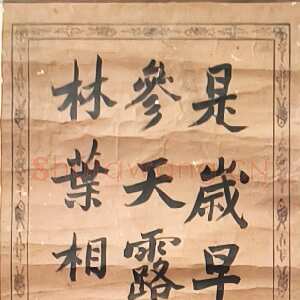 是歲早
參天露
林葉相